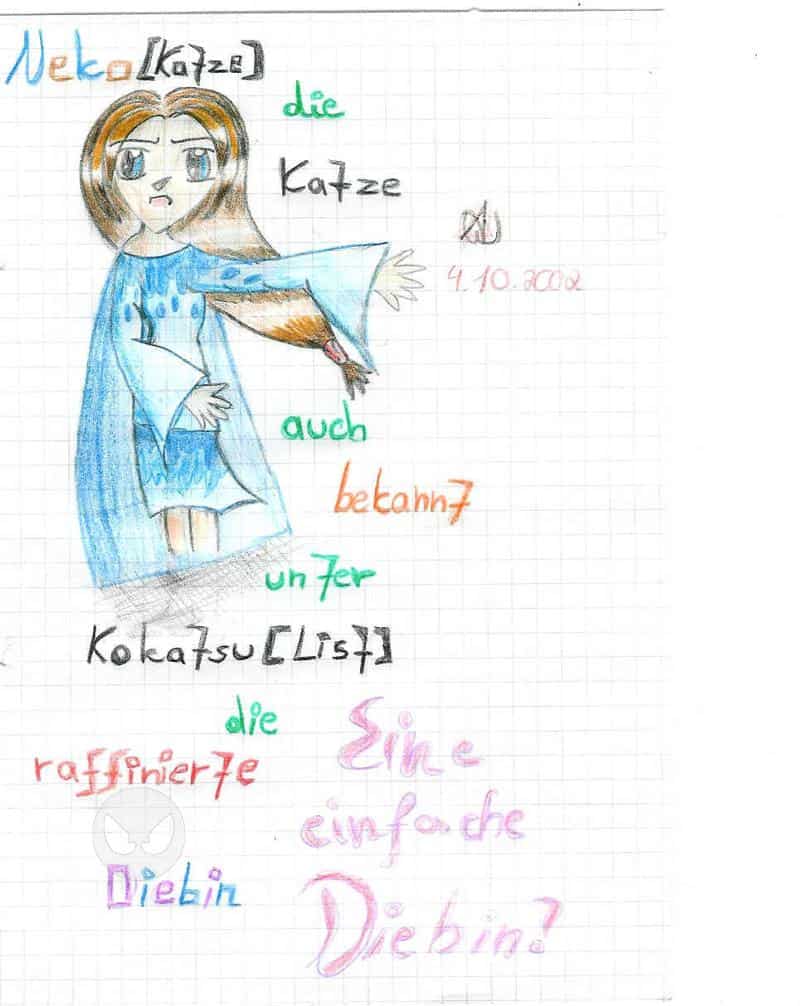 Neko [Ka7ze]
die
Ka7ze
4.10.2002
auch
bekann7
un7er
Koka7su [Lis7]
die
raffinier7e
Diebin
Eine
einfache
Diebin?